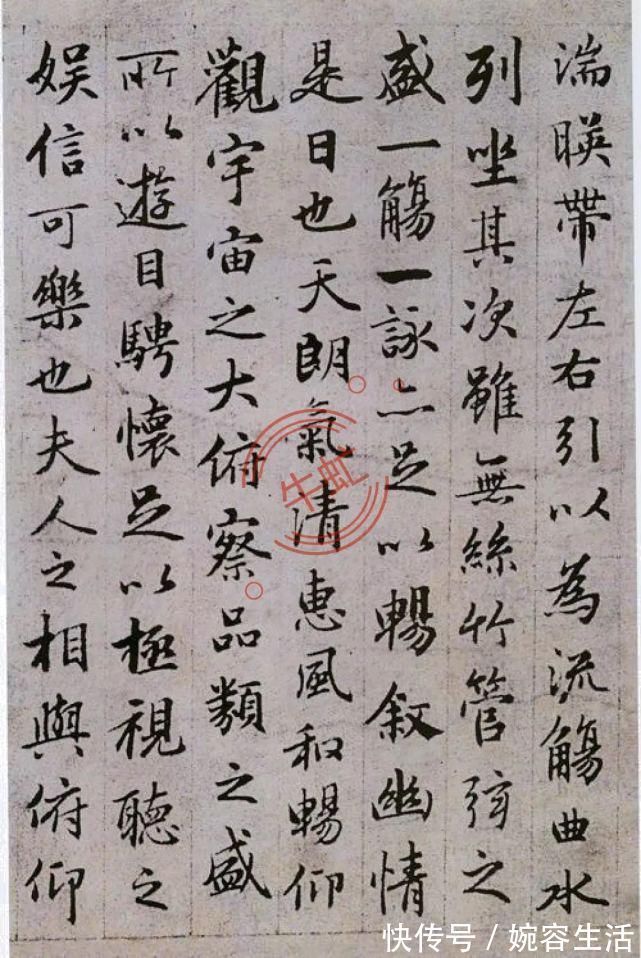 湍暎帶左右引以為流觴曲水
列坐其次雖無絲竹管弦之
盛一觴一詠亦足以暢敘幽情
是日也天朗氣清惠風和暢仰
觀宇宙之大俯察品類之盛
所以遊目騁懷足以極視聽之
娱信可樂也夫人之相與俯仰
牛虻
快传号／婉容生活